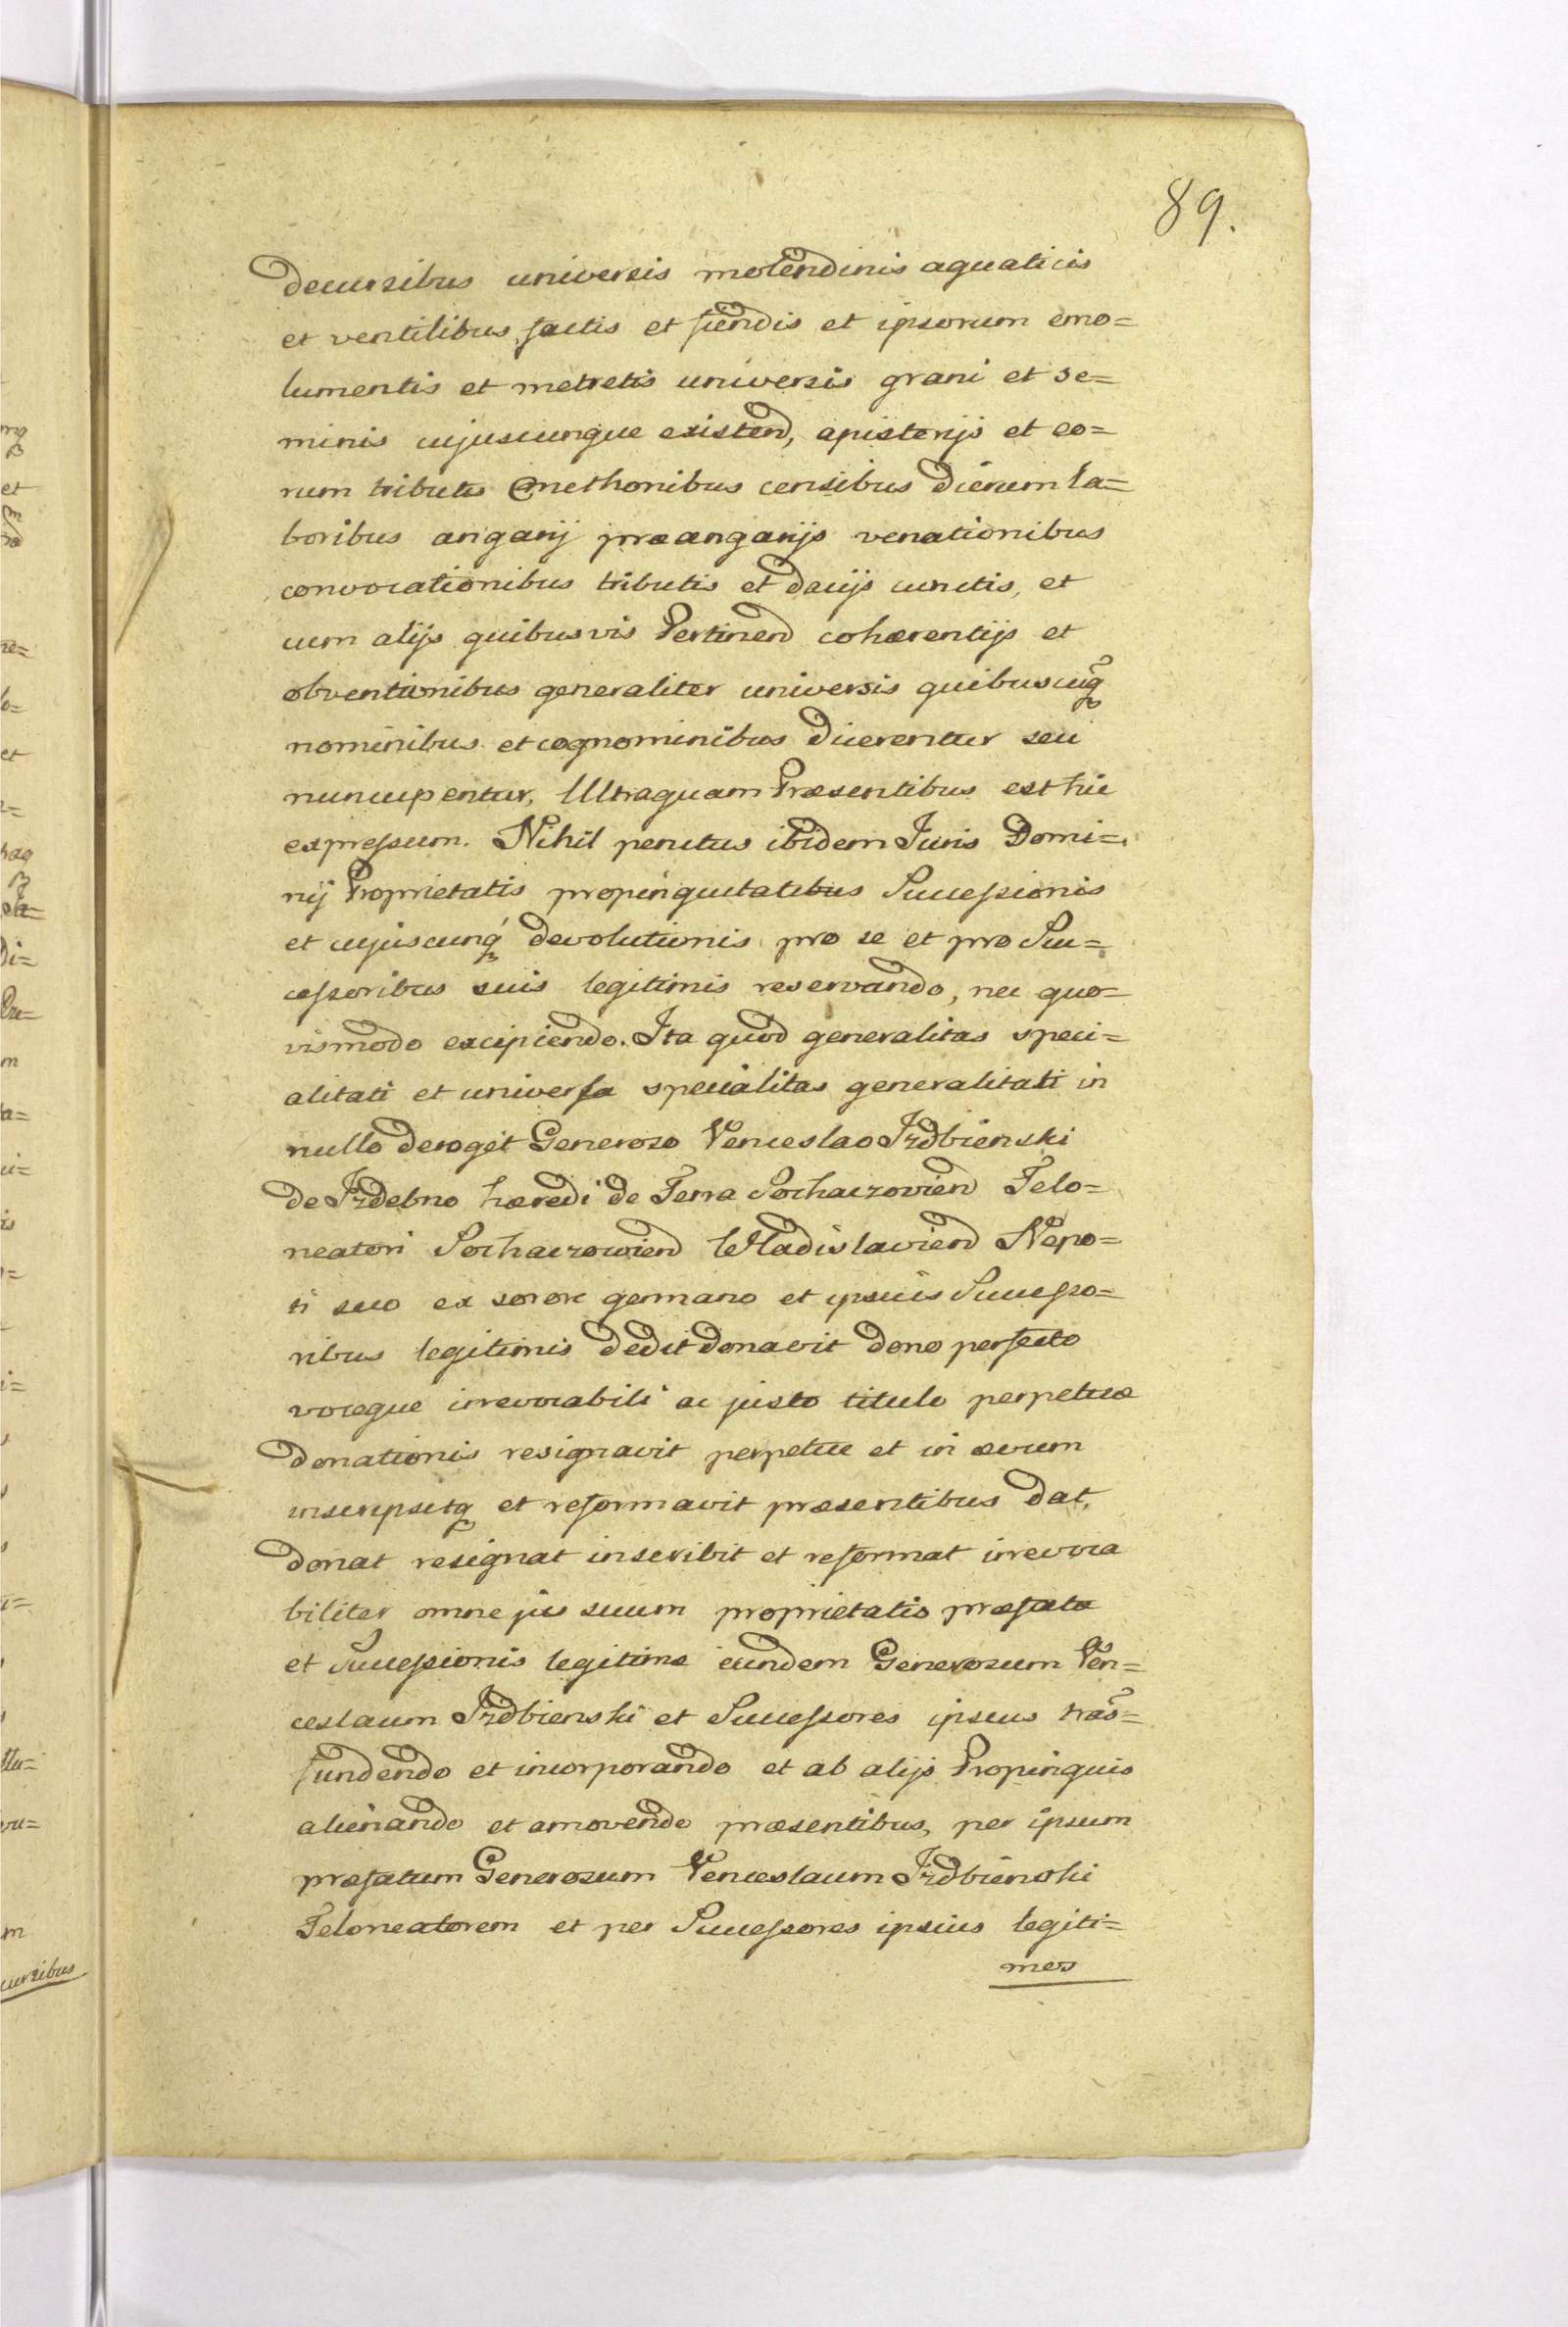 89.
decursibus universis molendinis aquaticis
et ventilibus, factis et fiendis et ipsorum emo=
lumentis et metretis universis grani et se=
minis cujuscunque existend, apisterijs et eo=
rum tributis Cmethonibus censibus dierum la=
boribus angarij præangarijs venationibus
convocationibus tributis et dacijs cunctis, et
cum alijs quibusvis Pertinend cohærentijs et
obventionibus generaliter universis quibuscuq
nominibus et cognominibus dicerentur seu
nuncupentur, Ultraquam Præsentibus est hic
expressum. Nihil penitus ibidem Juris Domi=
nij Proprietatis propinquitatibus Successionis
et cujuscunq devolutionis pro se et pro Suc=
cessoribus suis legitimis reservando, nec quo=
vismodo excipiendo. Ita quod generalitas speci=
alitati et universa specialitas generalitati in
nullo deroget Generoso Venceslao Izdbienski
de Izdebno hæredi de Terra Sochaczovien Telo=
neatori Sochaczowien Wladislavien Nepo=
ti suo ex sorore germano et ipsius Successo=
ribus legitimis dedit donavit dono perfecto
voceque irrevocabili ac justo titulo perpetuæ
donationis resignavit perpetue et in ævum
inscripsitq et reformavit præsentibus dat,
donat resignat inscribit et reformat irrevoca
biliter omne jus suum proprietatis præfatæ
et Successionis legitimæ eundem Generosum Ven=
ceslaum Izdbienski et Successores ipsius tras=
fundendo et incorporando et ab alijs Propinquis
alienando et amovendo præsentibus, per ipsum
præfatum Generosum Venceslaum Izdbienski
Teloneatorem et per Successores ipsius legiti=
mos